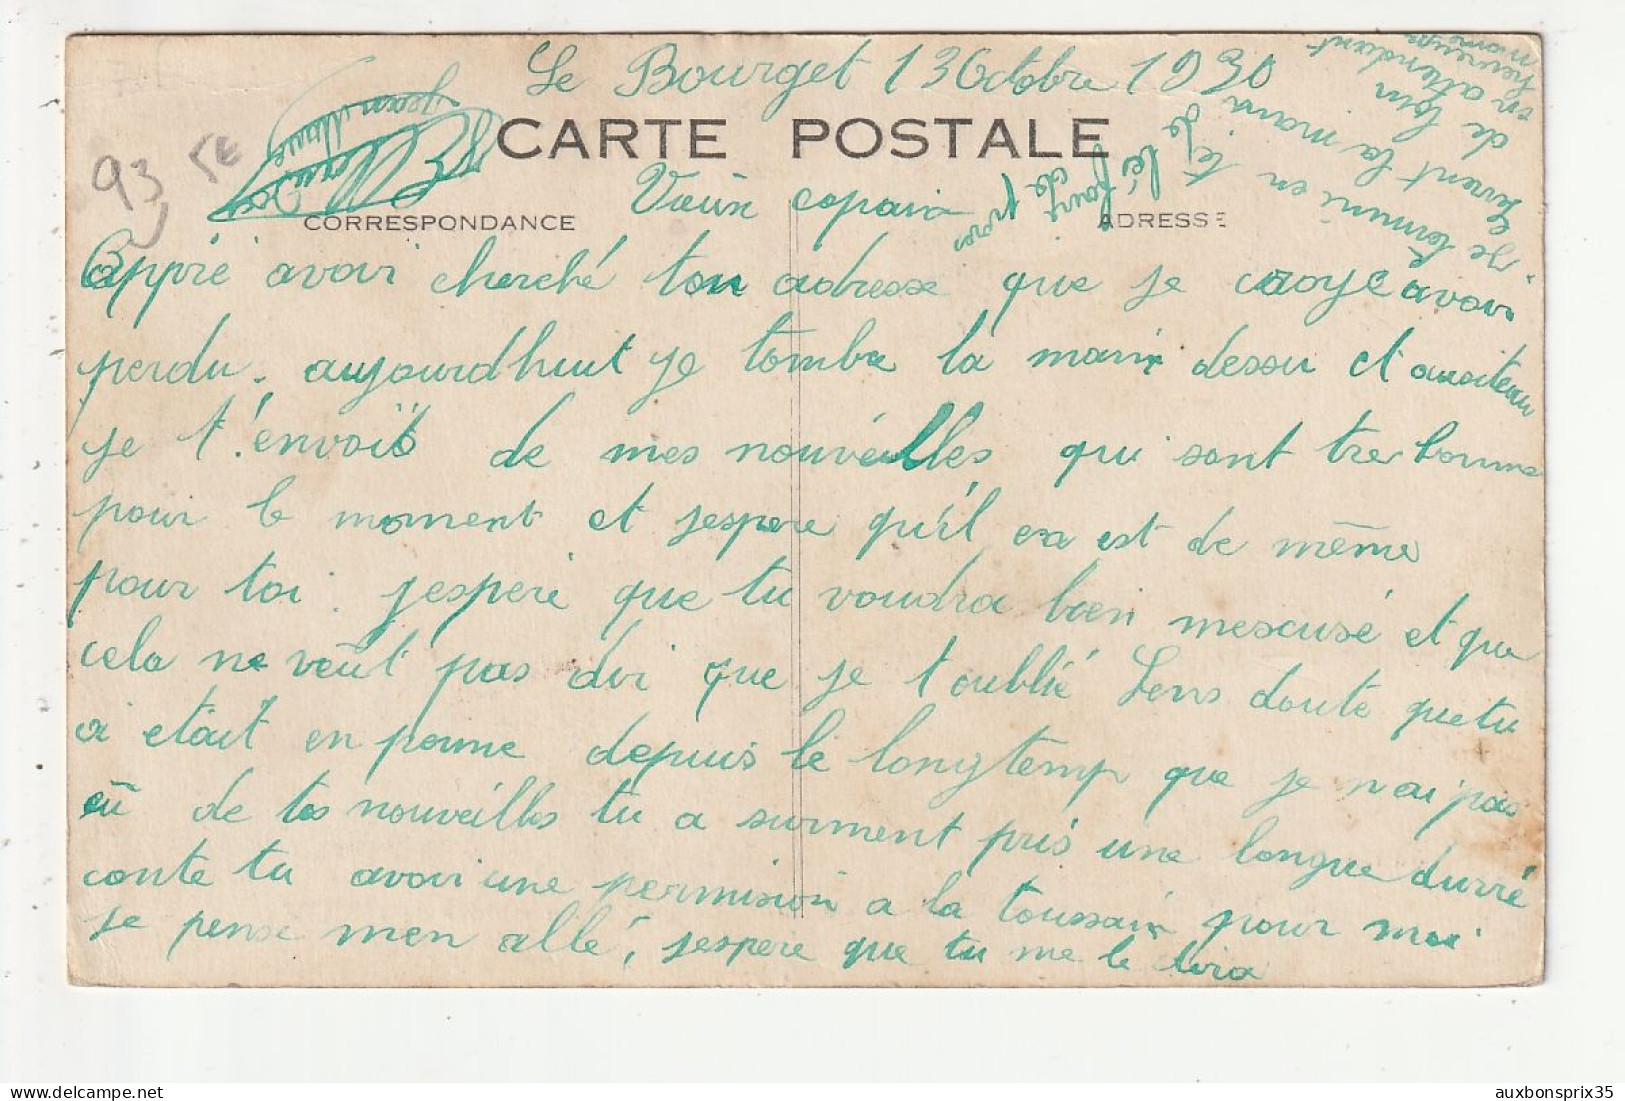 Le Bourget 13 Octobre 1930
CARTE POSTALE
93
5E
CORRESPONDANCE
ADRESSE
Vieux copain
Apprè avoir cherché ton adresse que je croye avoir
perdu. aujourdhuit je tombe la main dessu et aussiteau
je t'envoiς de mes nouvèilles qui sont tres bonne
pour le moment et jespere qu'il en est de même
pour toi. j'espere que tu voudra bien mescusé et que
cela ne veut pas dir que je t oublié Sens doute que tu
ci etait en panne depuis le longtemp que je n ai pas
eū de tes nouveilles tu a surment pris une longue durré
conte tu avoir une permision a la toussain pour moi
je pense men allé, jespere que tu me le dira
Je termine en te
serrent la main
de loin
en atendant
de pres
Jean
auxbonsprix35